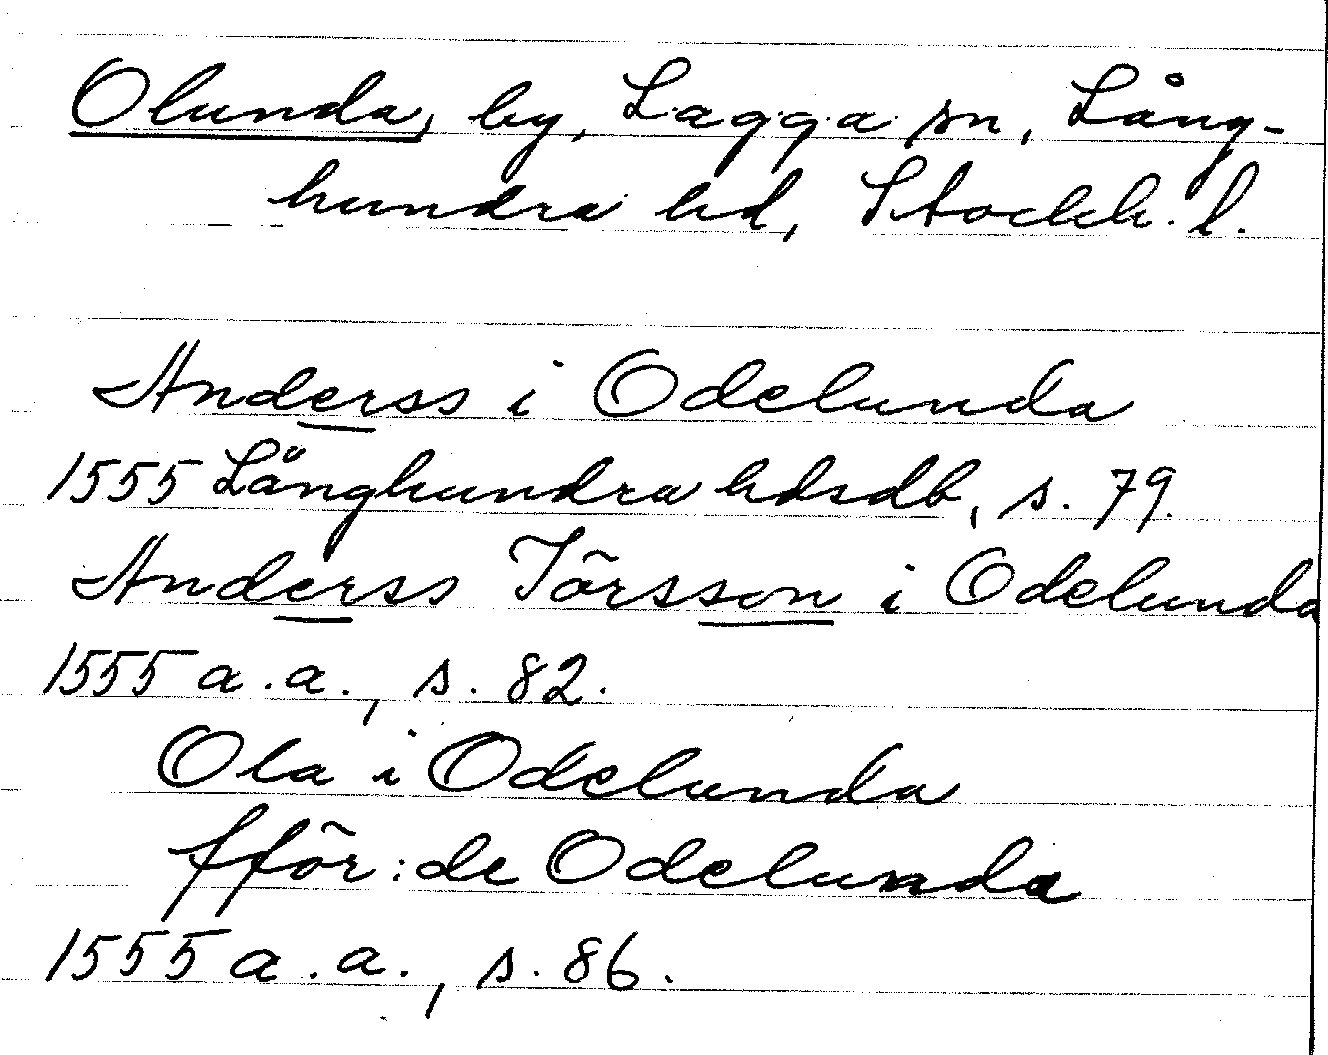 Olunda, by, Lagga sn, Lång-
hundra hd, Stockh. l.
Anderss i Odelunda
1555 Långhundra hdsdb, s. 79.
Anderss Törsson i Odelunda
1555 a.a., s. 82.
Ola i Odelunda
fför: de Odelunda
1555 a.a., s. 86.